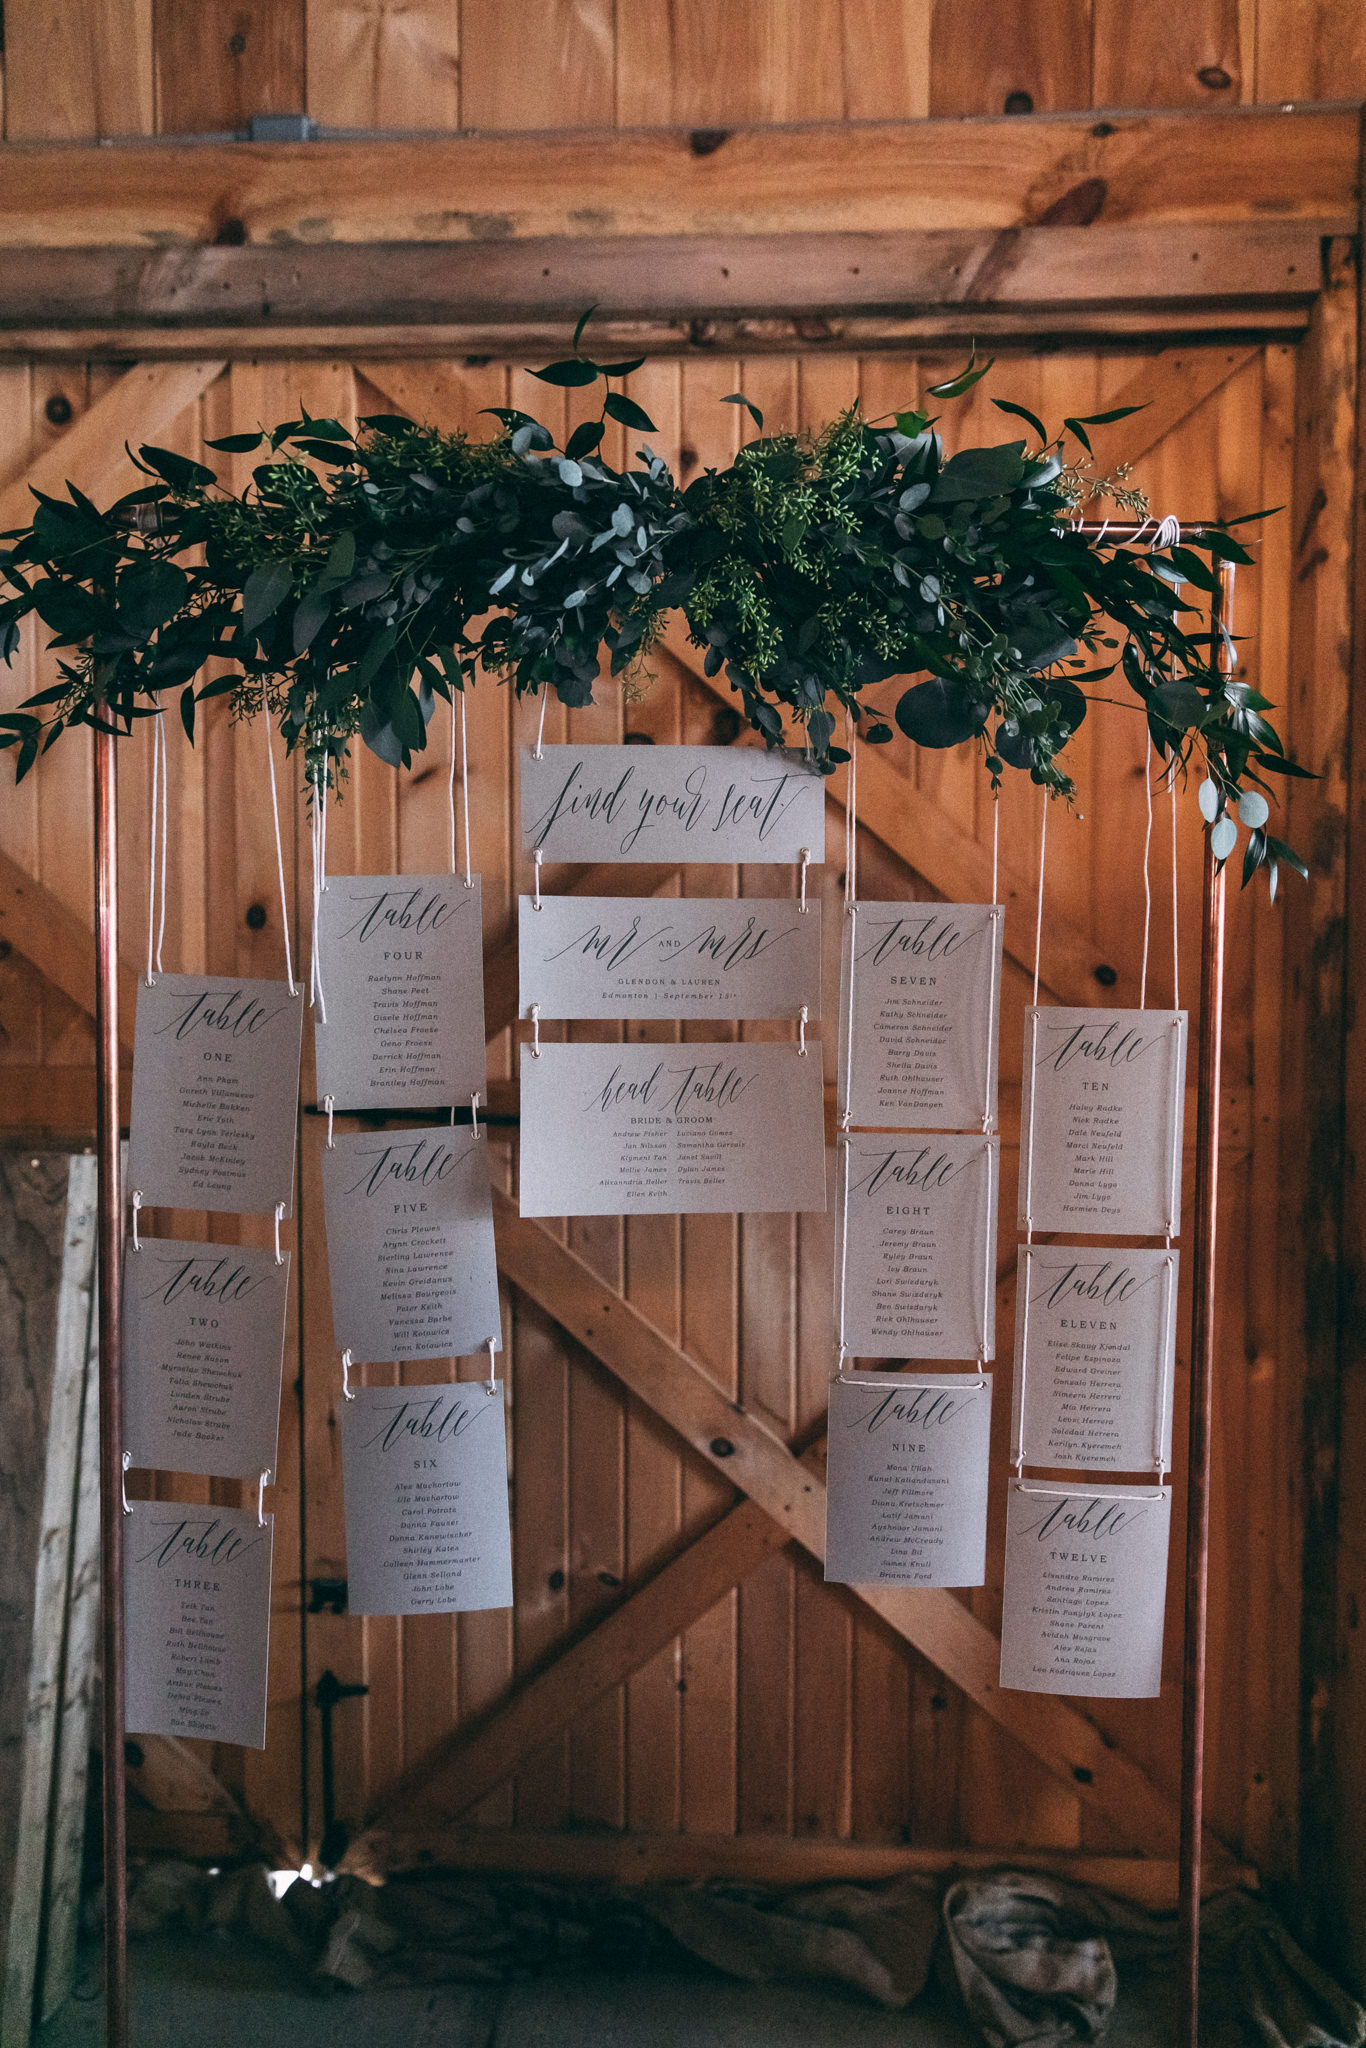 find your seat
mr AND mrs
GLENDON & LAUREN
Edmonton | September 15th
head table
BRIDE & GROOM
Andrew Fisher Luciano Gomes
Jan Nilsson Samantha Gervais
Klyment Tan Janet Savill
Mollie James Dylan James
Alixanndria Heller Travis Heller
Ellen Keith
table
ONE
Ann Pham
Gareth Villanueva
Michelle Bakken
Eric Toth
Tara Lynn Terlesky
Kayla Beck
Jacob McKinley
Sydney Postmus
Ed Leung
table
TWO
John Watkins
Renee Suson
Myroslav Shewchuk
Talia Shewchuk
Lunden Strube
Aaron Strube
Nicholas Strube
Jade Booker
table
THREE
Teik Tan
Bee Tan
Bill Bellhouse
Ruth Bellhouse
Robert Lamb
May Chan
Arthur Plewes
Debra Plewes
Ming Lo
Sue Shigeta
table
FOUR
Raelynn Hoffman
Shane Peet
Travis Hoffman
Gisele Hoffman
Chelsea Froese
Geno Froese
Derrick Hoffman
Erin Hoffman
Brantley Hoffman
table
FIVE
Chris Plewes
Arynn Crockett
Sterling Lawrence
Nina Lawrence
Kevin Greidanus
Melissa Bourgeois
Peter Keith
Vanessa Barbe
Will Kotowicz
Jenn Kotowicz
table
SIX
Alex Machortow
Ule Machortow
Carol Potratz
Donna Fauser
Donna Kanewischer
Shirley Kates
Colleen Hammermaster
Glenn Selland
John Lobe
Gerry Lobe
table
SEVEN
Jim Schneider
Kathy Schneider
Cameron Schneider
David Schneider
Barry Davis
Sheila Davis
Ruth Ohlhauser
Joanne Hoffman
Ken VanDongen
table
EIGHT
Carey Braun
Jeremy Braun
Ryley Braun
Ivy Braun
Lori Swizdaryk
Shane Swizdaryk
Ben Swizdaryk
Rick Ohlhauser
Wendy Ohlhauser
table
NINE
Mona Ullah
Kunal Kaliandasani
Jeff Fillmore
Diana Kretschmer
Latif Jamani
Ayshnoor Jamani
Andrew McCready
Lina Bil
James Knull
Brianne Ford
table
TEN
Haley Radke
Nick Radke
Dale Neufeld
Marci Neufeld
Mark Hill
Marie Hill
Donna Lygo
Jim Lygo
Harmien Deys
table
ELEVEN
Elise Skaug Kjendal
Felipe Espinoza
Edward Greiner
Gonzalo Herrera
Simeera Herrera
Mia Herrera
Levei Herrera
Soledad Herrera
Karilyn Kyeremeh
Josh Kyeremeh
table
TWELVE
Lisandro Ramirez
Andrea Ramirez
Santiago Lopez
Kristin Panylyk Lopez
Shane Parent
Avideh Musgrave
Alex Rojas
Ana Rojas
Leo Rodriquez Lopez